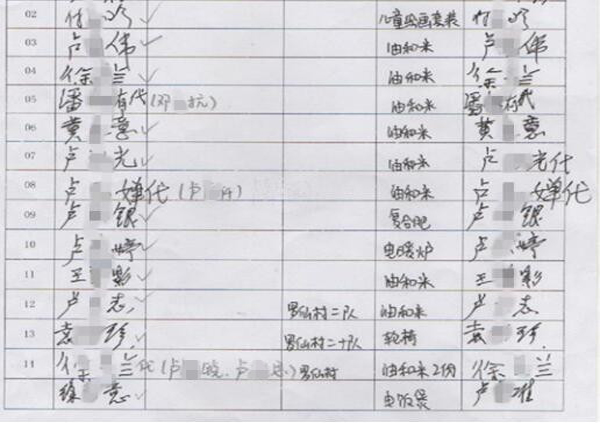 02 儿童绘画套装
03 卢 伟 油和米 卢 伟
04 徐 兰 油和米 徐 兰
05 潘 有代(邓 抗) 油和米 潘 有代
06 黄 意 油和米 黄 意
07 卢 光 油和米 卢 光代
08 卢 婵代(卢 ) 油和米 卢 婵代
09 卢 银 复合肥 卢 银
10 卢 婷 电暖炉 卢 婷
11 王 彩 油和米 王 彩
12 卢 志 男仙村二队 油和米 卢 志
13 袁 珍 男仙村二十队 轮椅 袁 珍
11 徐 兰代(卢 晓、卢 )男仙村 油和米2份 徐 兰
意 电饭煲 卢 准